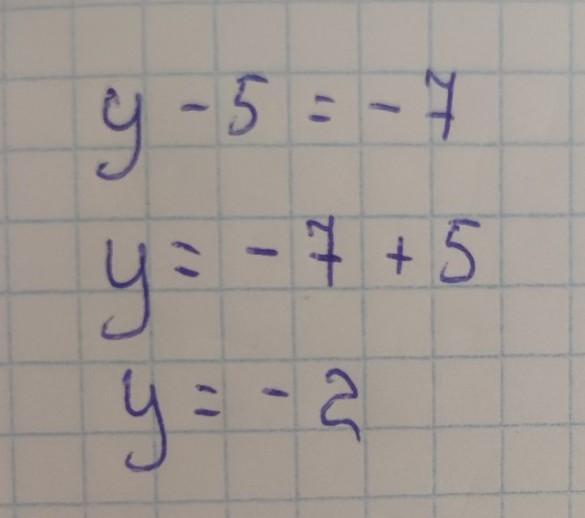 y - 5 = - 7
y = - 7 + 5
y = - 2